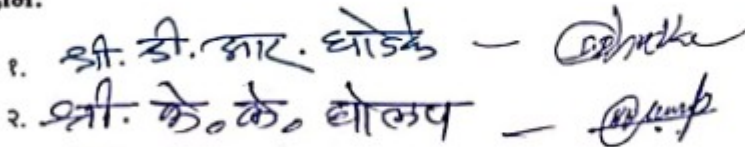 १. श्री. डी. आर. घोडके –
२. श्री. के. के. घोलप –